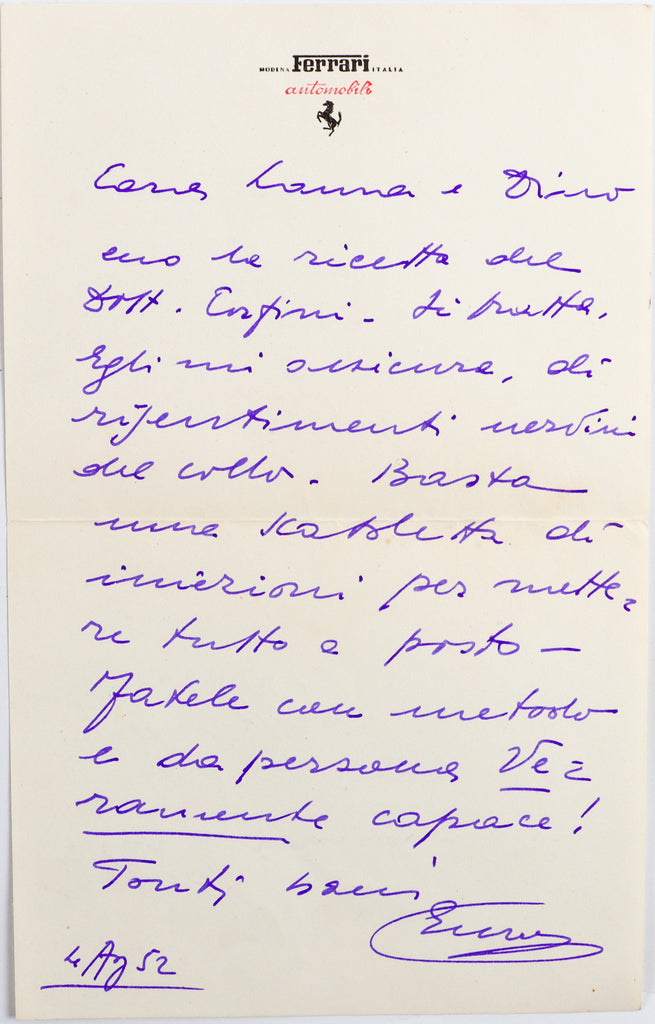 MODENA Ferrari ITALIA
automobili
Cara Launa e Dino
eno la ricetta del
Dott. Corfini - Si tratta,
Egli mi assicura, di
risentimenti nervini
del collo. Basta
una scatoletta di
iniezioni per mette=
re tutto a posto -
Fatele con metodo
e da persona Ve=
ramente capace!
Tanti baci
4 Ag 52